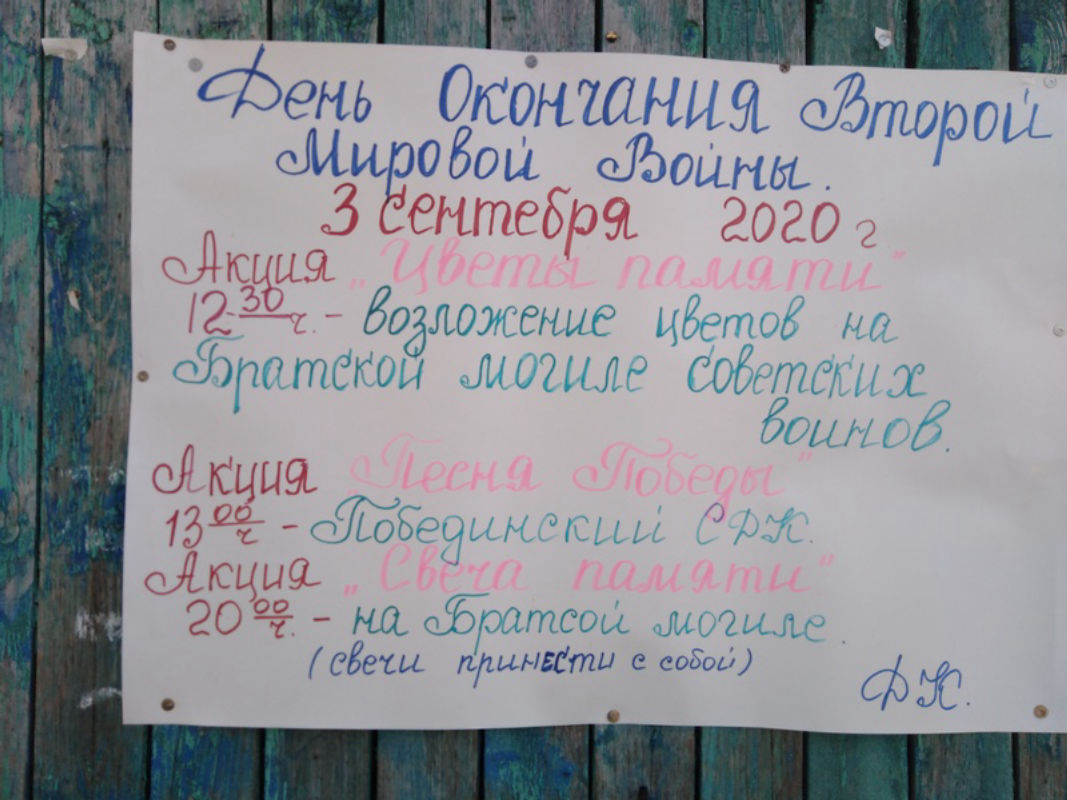 День Окончания Второй
Мировой Войны.
3 сентебря 2020 г
Акция „Цветы памяти"
12-30 ч. - возложение цветов на
Братской могиле советских
воинов.
Акция „Песня Победы"
13 00 ч - Побединский СДК.
Акция „Свеча памяти"
20 00 ч. - на Братсой могиле.
(свечи принести с собой)
ДК.